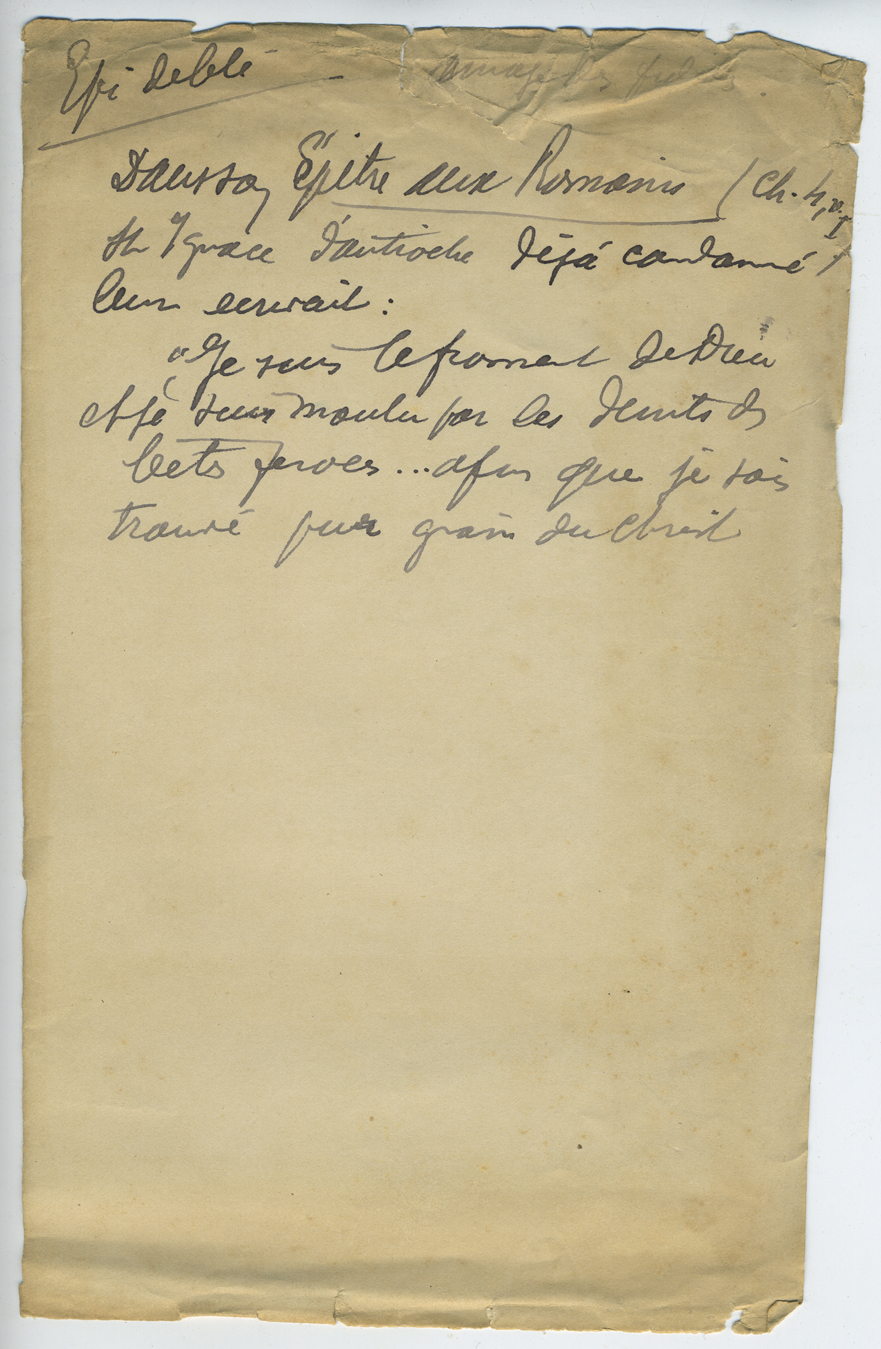 Epi de blé
Dans son Épitre aux Romains (Ch. 4, v. I)
St Ignace d'antioche déjà condamné
leur ecrivait :
"Je suis le froment de Dieu
et je suis moulu par les dents des
betes feroces ... afin que je sois
trouvé pur grain du Christ